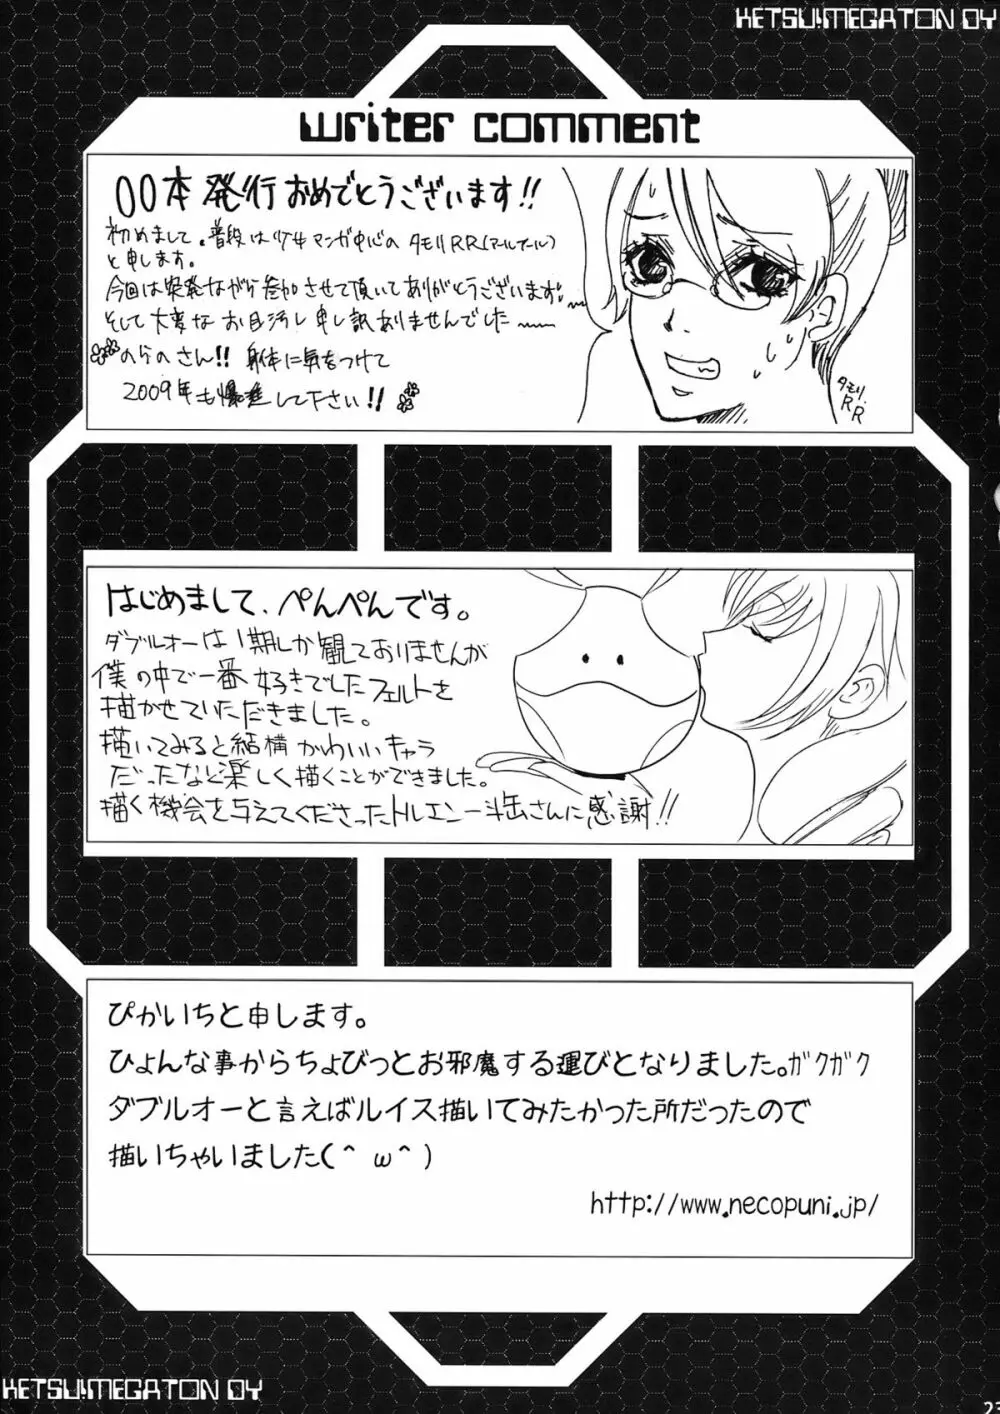 KETSU!MEGATON OY
writer comment
00本 発行おめでとうございます!!
初めまして。普段は少女マンガ中心の タモリRR(アールアール)
と申します。
今回は突発ながら参加させて頂いてありがとうございます。
そして大変なお目汚し申し訳ありませんでした〜
のらのさん!! 身体に気をつけて
2009年も爆進して下さい!!
タモリ.
RR
はじめまして、ぺんぺんです。
ダブルオーは1期しか観ておりませんが
僕の中で一番好きでしたフェルトを
描かせていただきました。
描いてみると結構かわいいキャラ
だったなと楽しく描くことができました。
描く機会を与えてくださったトルエン一斗缶さんに感謝!!
ぴかいちと申します。
ひょんな事からちょびっとお邪魔する運びとなりました。ガクガク
ダブルオーと言えばルイス描いてみたかった所だったので
描いちゃいました(^ω^)
http://www.necopuni.jp/
KETSU!MEGATON OY